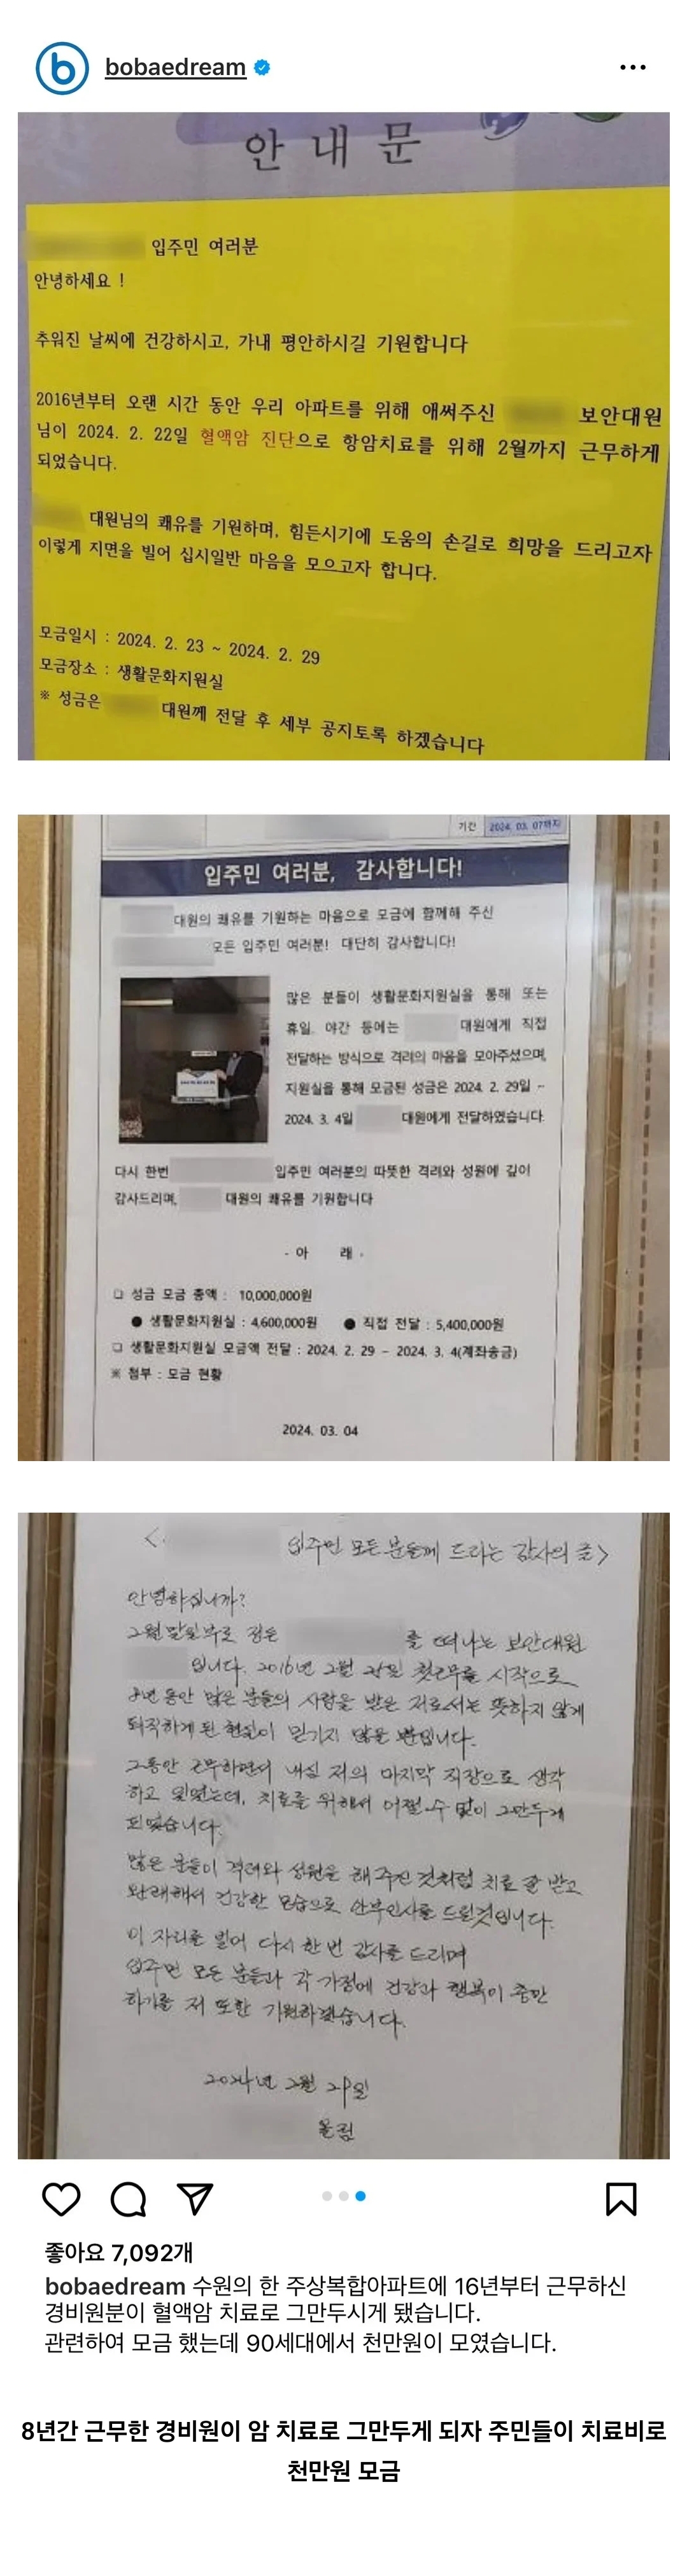 bobaedream
안 내 문
입주민 여러분
안녕하세요 !
추워진 날씨에 건강하시고, 가내 평안하시길 기원합니다
2016년부터 오랜 시간 동안 우리 아파트를 위해 애써주신 보안대원
님이 2024. 2. 22일 혈액암 진단으로 항암치료를 위해 2월까지 근무하게
되었습니다.
대원님의 쾌유를 기원하며, 힘든시기에 도움의 손길로 희망을 드리고자
이렇게 지면을 빌어 십시일반 마음을 모으고자 합니다.
모금일시 : 2024. 2. 23 ~ 2024. 2. 29
모금장소 : 생활문화지원실
※ 성금은 대원께 전달 후 세부 공지토록 하겠습니다
기간 2024. 03. 07까지
입주민 여러분, 감사합니다!
대원의 쾌유를 기원하는 마음으로 모금에 함께해 주신
모든 입주민 여러분! 대단히 감사합니다!
많은 분들이 생활문화지원실을 통해 또는
휴일, 야간 등에는 대원에게 직접
전달하는 방식으로 격려의 마음을 모아주셨으며,
지원실을 통해 모금된 성금은 2024. 2. 29일 -
2024. 3. 4일 대원에게 전달하였습니다.
다시 한번 입주민 여러분의 따뜻한 격려와 성원에 깊이
감사드리며, 대원의 쾌유를 기원합니다
- 아 래 -
❑ 성금 모금 총액 : 10,000,000원
● 생활문화지원실 : 4,600,000원 ● 직접 전달 : 5,400,000원
❑ 생활문화지원실 모금액 전달 : 2024. 2. 29 - 2024. 3. 4(계좌송금)
※ 첨부 : 모금 현황
2024. 03. 04
< 입주민 모든 분들께 드리는 감사의 글>
안녕하십니까?
2월 말일부로 정든 를 떠나는 보안대원
입니다. 2016년 2월 첫근무를 시작으로
8년 동안 많은 분들의 사랑을 받은 저로서는 뜻하지 않게
퇴직하게 된 현실이 믿기지 않을 뿐입니다.
그동안 근무하면서 내심 저의 마지막 직장으로 생각
하고 있었는데, 치료를 위해서 어쩔수 없이 그만두게
되었습니다.
많은 분들이 격려와 성원을 해 주신 것처럼 치료 잘 받고
완쾌해서 건강한 모습으로 안부인사를 드릴것입니다.
이 자리를 빌어 다시 한번 감사를 드리며
입주민 모든 분들과 각 가정에 건강과 행복이 충만
하기를 저 또한 기원하겠습니다.
2024년 2월 29일
올림
좋아요 7,092개
bobaedream 수원의 한 주상복합아파트에 16년부터 근무하신
경비원분이 혈액암 치료로 그만두시게 됐습니다.
관련하여 모금 했는데 90세대에서 천만원이 모였습니다.
8년간 근무한 경비원이 암 치료로 그만두게 되자 주민들이 치료비로
천만원 모금